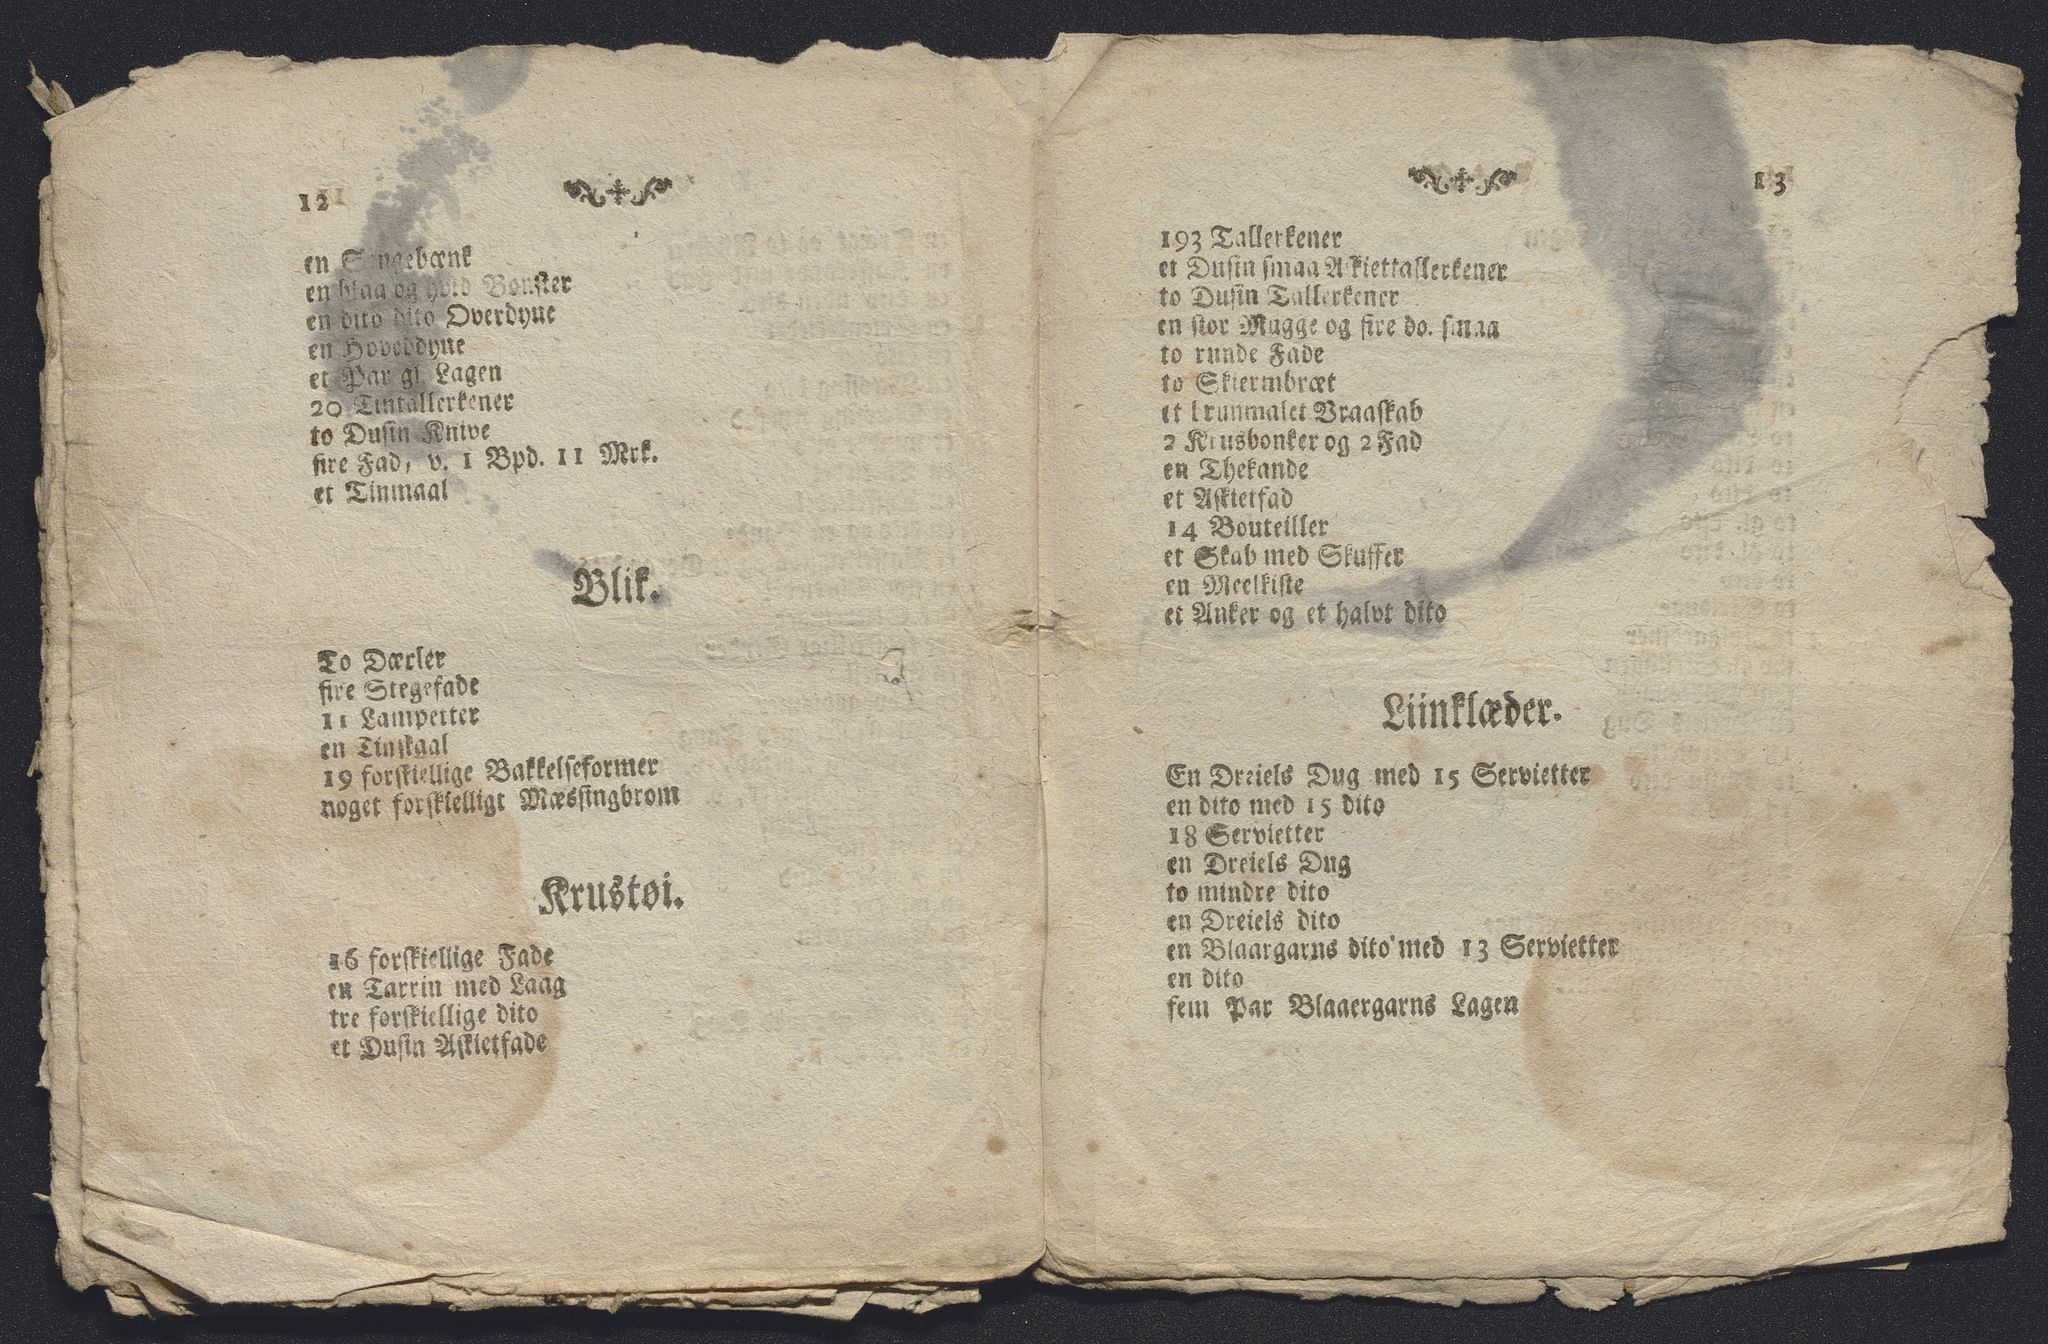 12
en Sengebænk
en blaa og hvid Bønster
en dito dito Overdyne
en Hoveddyne
et Par gl. Lagen
20 Tintallerkener
to Dusin Knive
fire Fad, v. 1 Bpd. 11 Mrk.
et Tinmaal
Blik.
To Dørler
fire Stegefade
11 Lampetter
en Tinskaal
19 forskiellige Bakkelseformer
noget forskielligt Mæssingbrom
Krustøi.
16 forskiellige Fade
en Tarrin med Laag
tre forskiellige dito
et Dusin Askietfade
13
193 Tallerkener
et Dusin smaa Askiettallerkener
to Dusin Tallerkener
en stor Mugge og fire do. smaa
to runde Fade
to Skiermbræt
et brunmalet Vraaskab
2 Krusbonker og 2 Fad
en Thekande
et Askietfad
14 Bouteiller
et Skab med Skuffer
en Meelkiste
et Anker og et halvt dito
Liinklæder.
En Dreiels Dug med 15 Servietter
en dito med 15 dito
18 Servietter
en Dreiels Dug
to mindre dito
en Dreiels dito
en Blaargarns dito med 13 Servietter
en dito
fem Par Blaaergarns Lagen